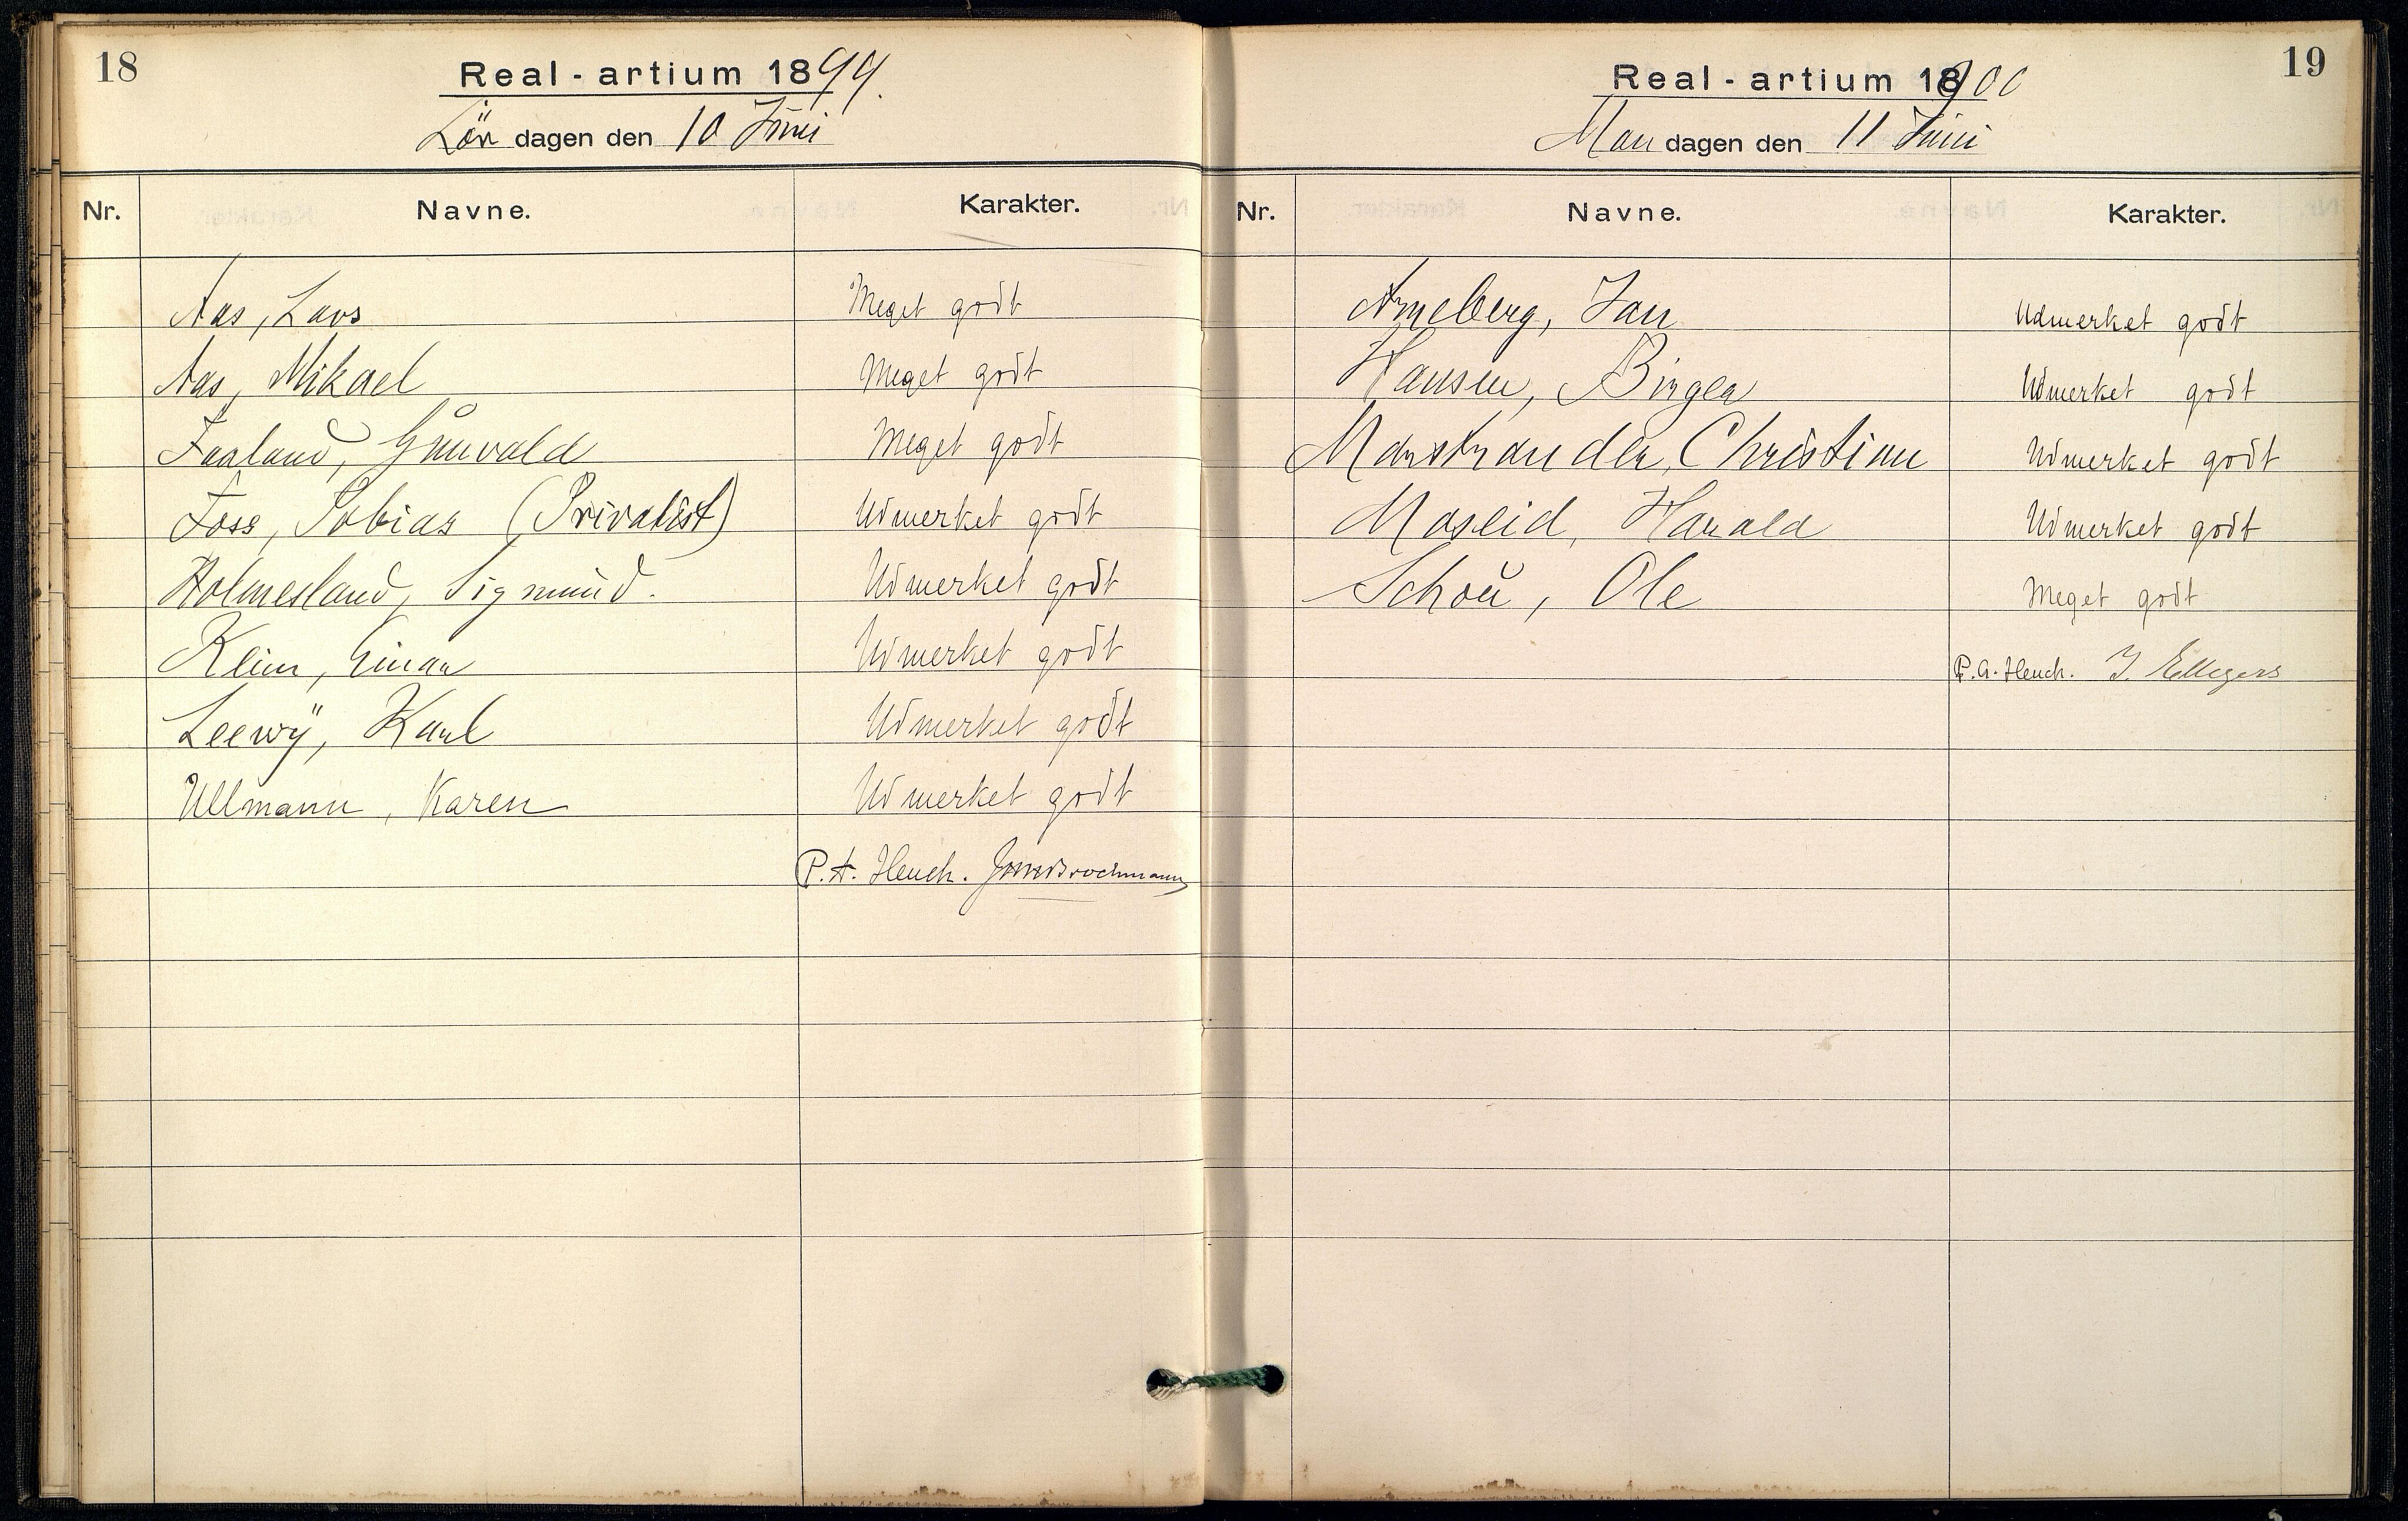 18
Real-artium 1899.
Lör dagen den 10 Juni
Nr. Navne. Karakter.
Aas, Lars Meget godt
Aas, Mikael Meget godt
Faaland, Gunvald Meget godt
Foss, Tobias (Privatist) Udmerket godt
Holmesland, Sigmund. Udmerket godt
Klem, Einar Udmerket godt
Leewÿ, Karl Udmerket godt
Ullmann, Karen Udmerket godt
P. A. Heuch. Brochmann
19
Real-artium 1900
Mandagen den 11 Juni
Nr. Navne. Karakter.
Arneberg, Jan Udmerket godt
Hansen, Birger Udmerket godt
Marstrander, Christian Udmerket godt
Moseid, Harald Udmerket godt
Schou, Ole Meget godt
P. A. Heuch. J. Ellegers